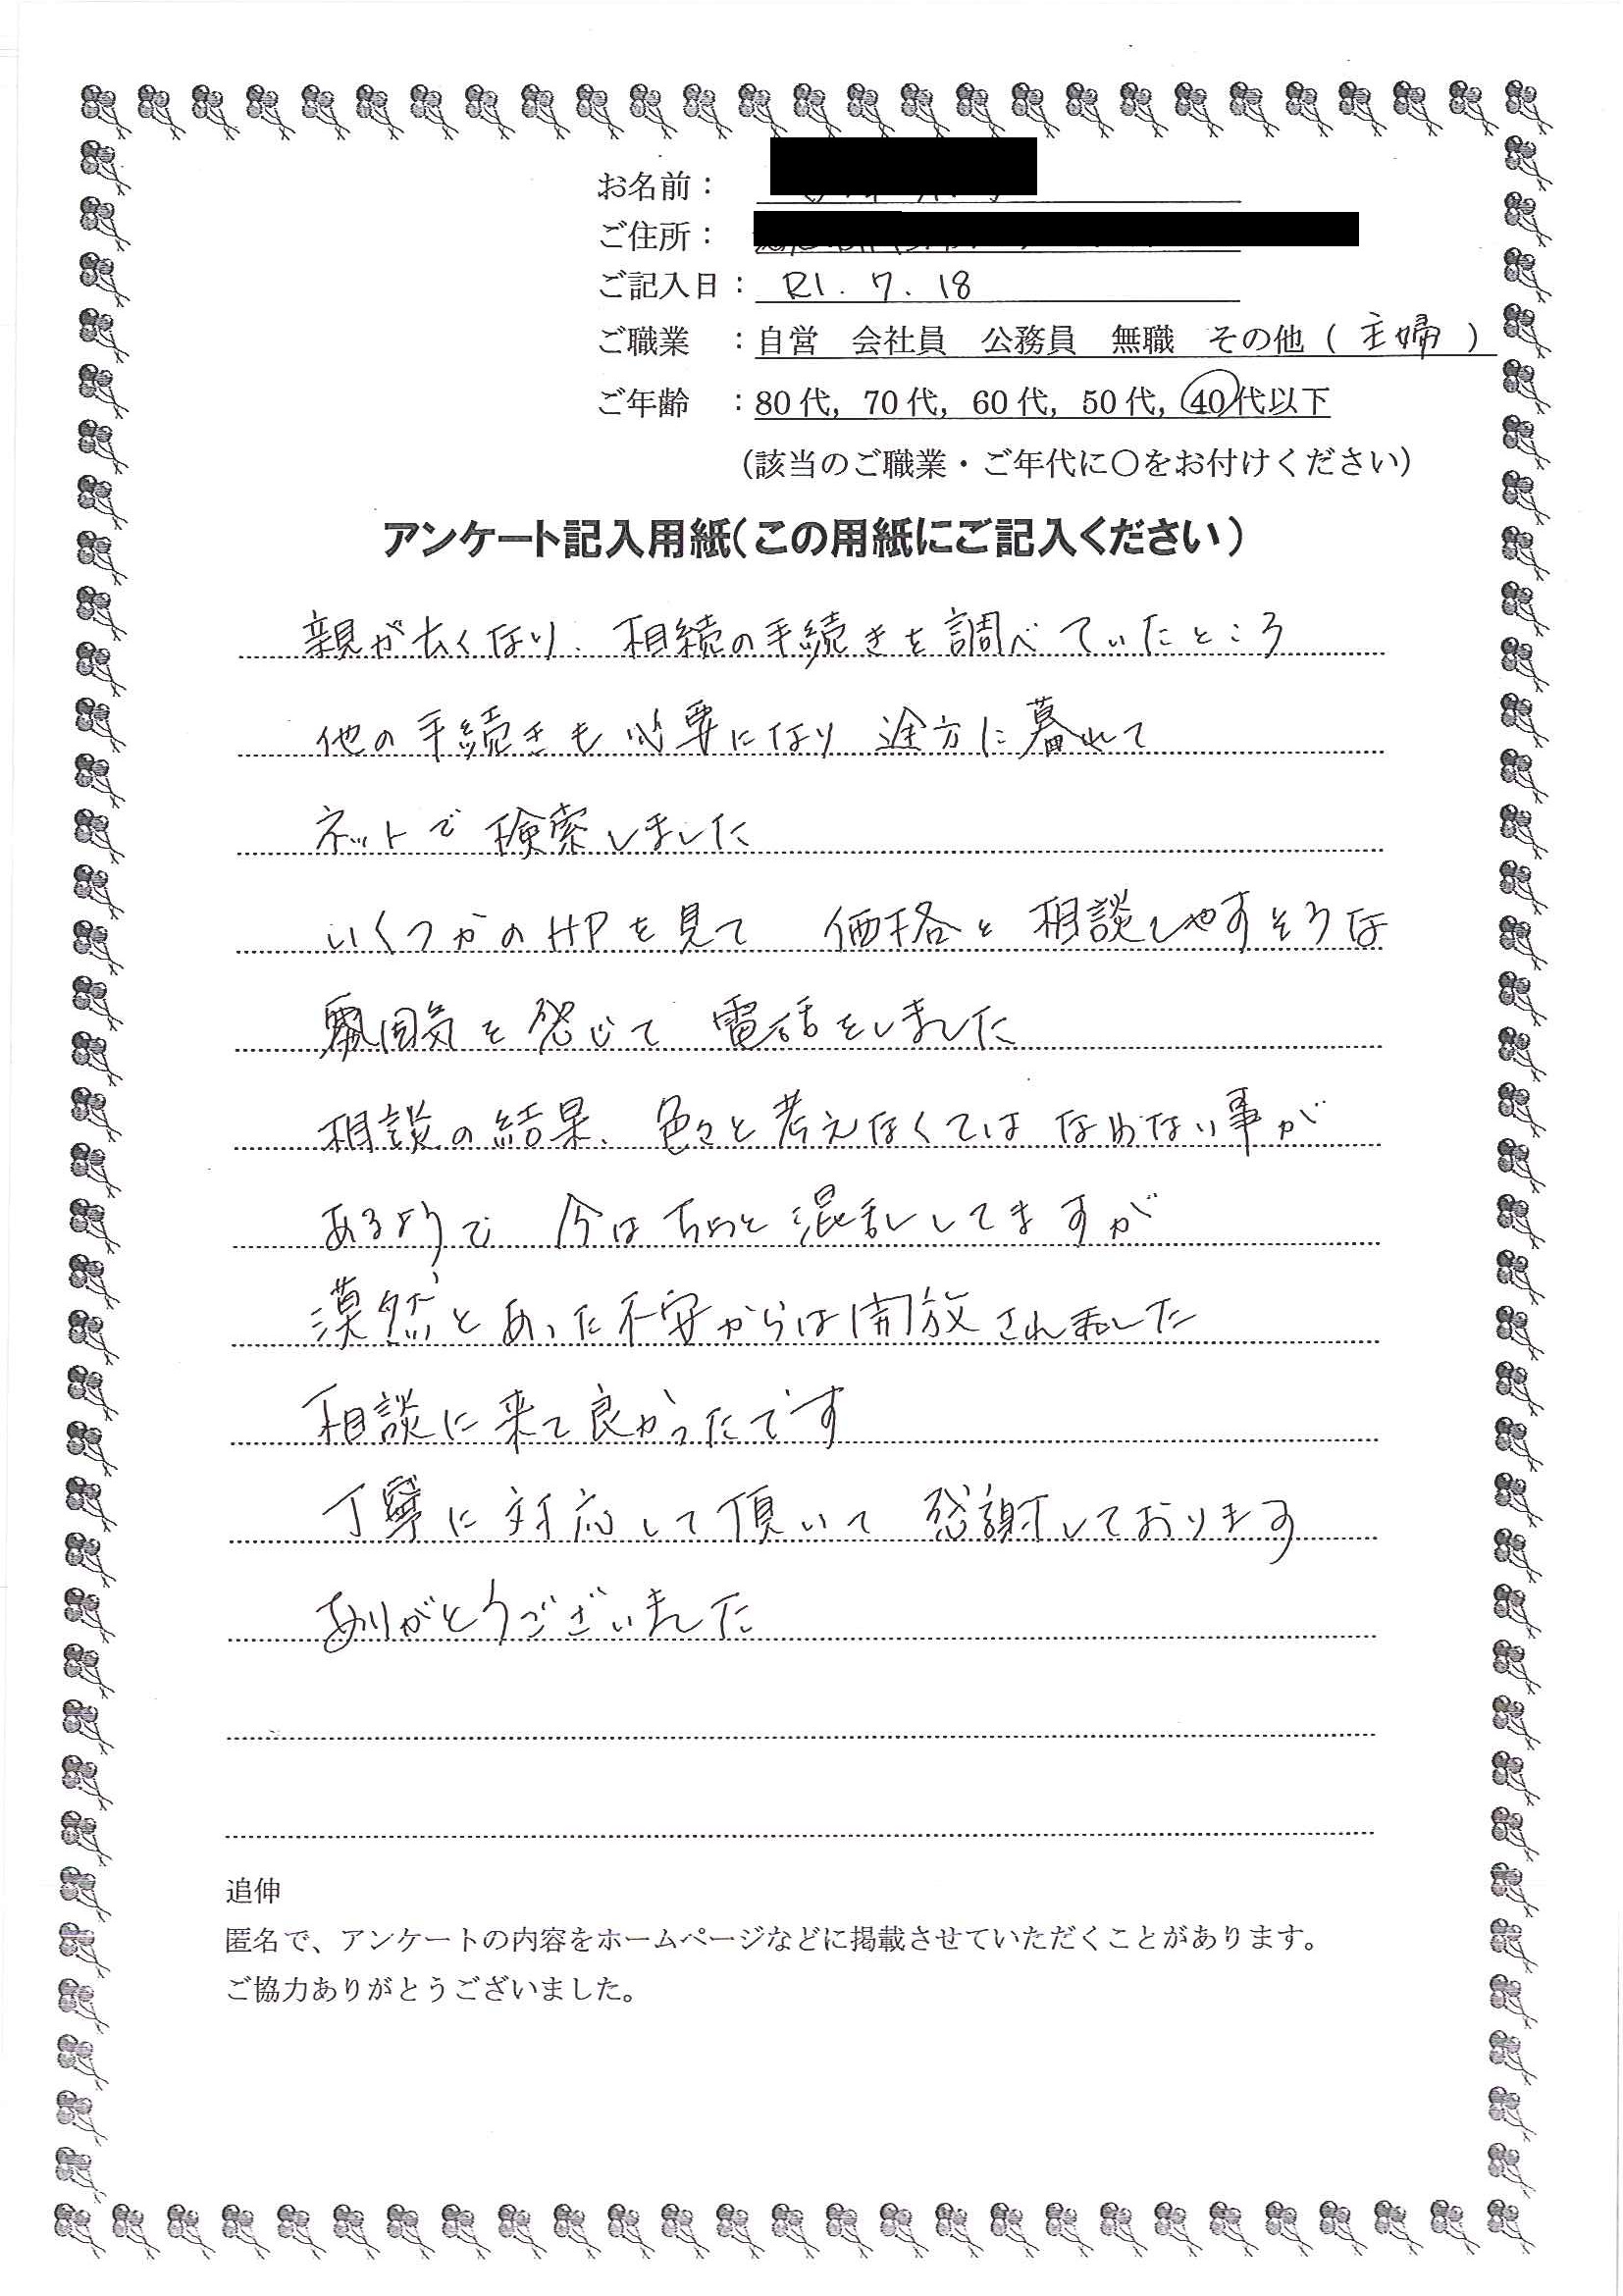 お名前：
ご住所：
ご記入日：R1.7.18
ご職業　：自営　会社員　公務員　無職　その他（主婦）
ご年齢　：80代，70代，60代，50代，40代以下
（該当のご職業・ご年代に〇をお付けください）
アンケート記入用紙（この用紙にご記入ください）
親が亡くなり、相続の手続きを調べていたところ
他の手続きも必要になり 途方に暮れて
ネットで検索しました
いくつかのHPを見て　価格と 相談しやすそうな
雰囲気を感じて 電話をしました
相談の結果、色々と考えなくてはならない事が
あるようで　今はちょっと混乱してますが
漠然とあった不安からは開放されました
相談に来て良かったです
丁寧に対応して頂いて 感謝しております
ありがとうございました
追伸
匿名で、アンケートの内容をホームページなどに掲載させていただくことがあります。
ご協力ありがとうございました。